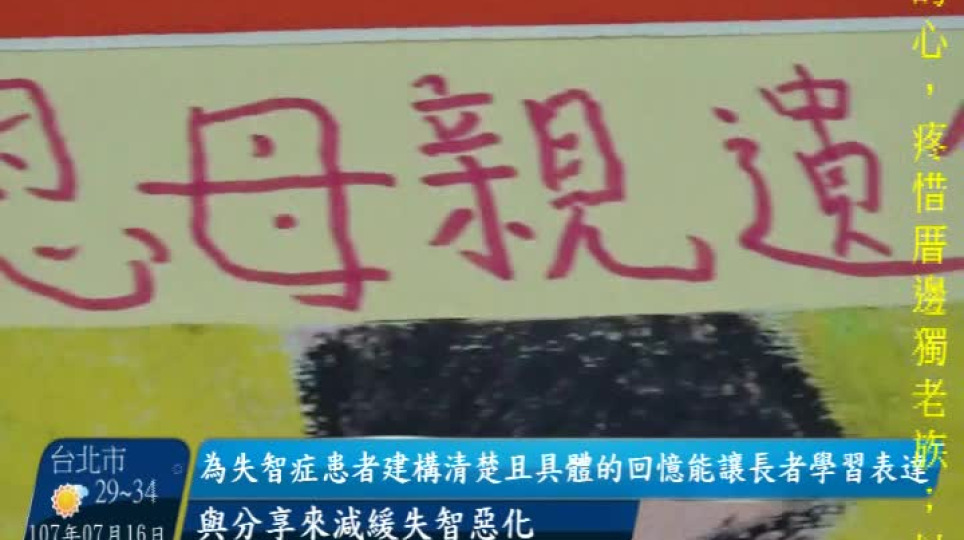 恩母親遺
的心，疼惜厝邊獨老族；
台北市
29~34
107年07月16日
為失智症患者建構清楚且具體的回憶能讓長者學習表達
與分享來減緩失智惡化